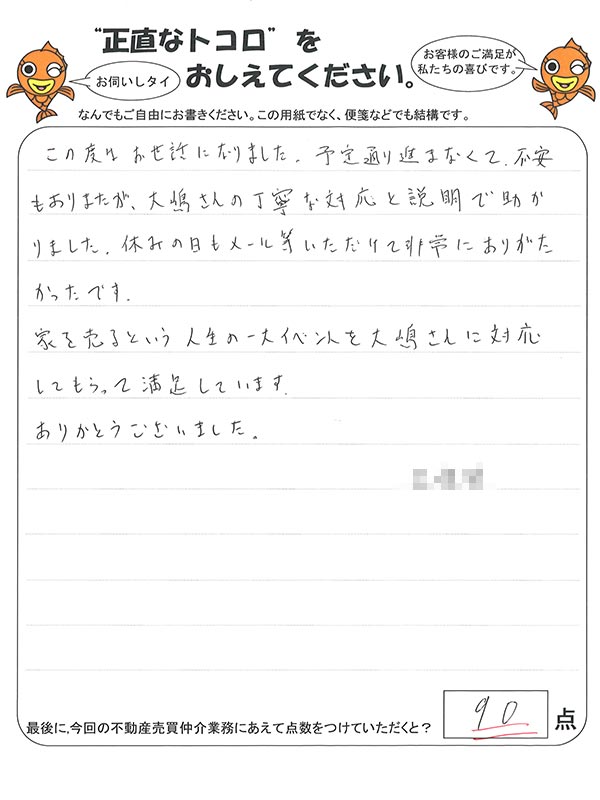 "正直なトコロ" を
おしえてください。
お伺いしタイ
お客様のご満足が
私たちの喜びです。
なんでもご自由にお書きください。この用紙でなく、便箋などでも結構です。
この度は お世話になりました. 予定通り進まなくて. 不安
もありまたが、大嶋さんの丁寧な対応と説明で助か
りました. 休みの日もメール等いただけて非常にありがた
かったです.
家を売るという 人生の一大イベントを大嶋さんに対応
してもらって満足しています.
ありがとうございました。
最後に,今回の不動産売買仲介業務にあえて点数をつけていただくと?
90 点